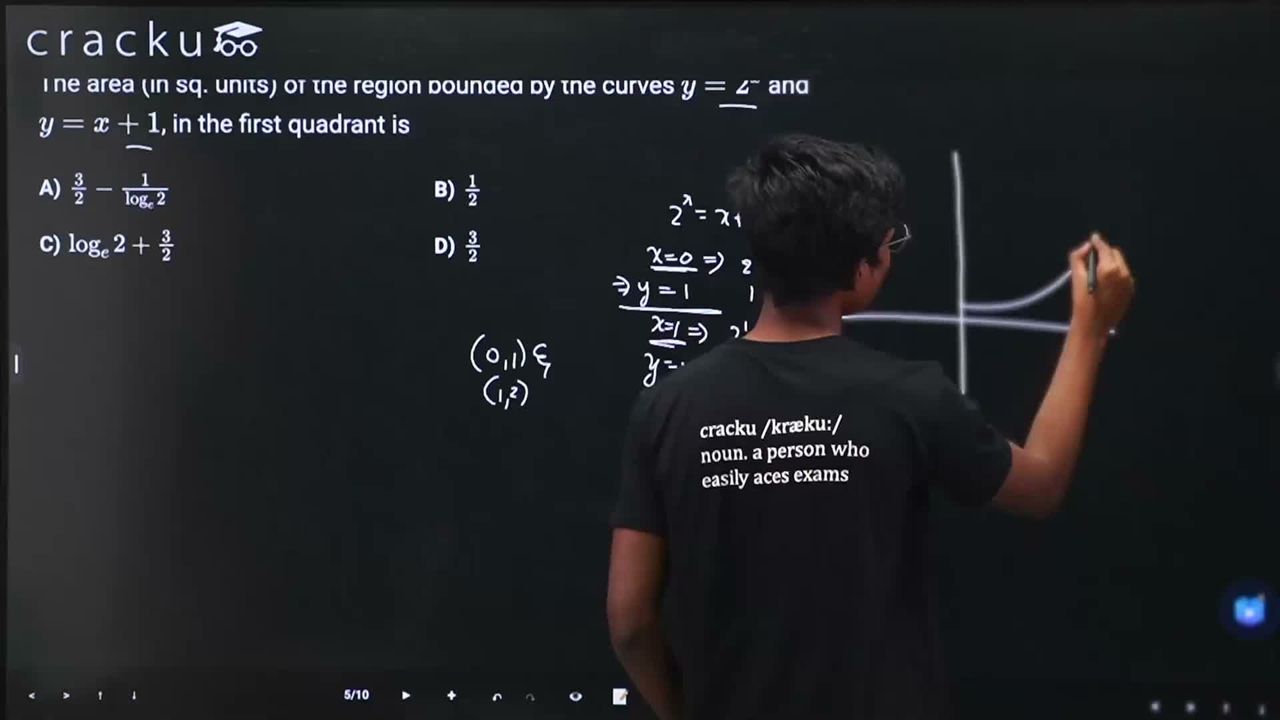 cracku
The area (in sq. units) of the region bounded by the curves y = 2ˣ and
y = x + 1, in the first quadrant is
A) 3/2 − 1/logₑ 2
B) 1/2
C) logₑ 2 + 3/2
D) 3/2
2ˣ = x+
x=0 ⇒ 2
⇒ y = 1 1
x=1 ⇒ 2¹
y =
(0,1) &
(1,2)
cracku /kræku:/
noun. a person who
easily aces exams
5/10